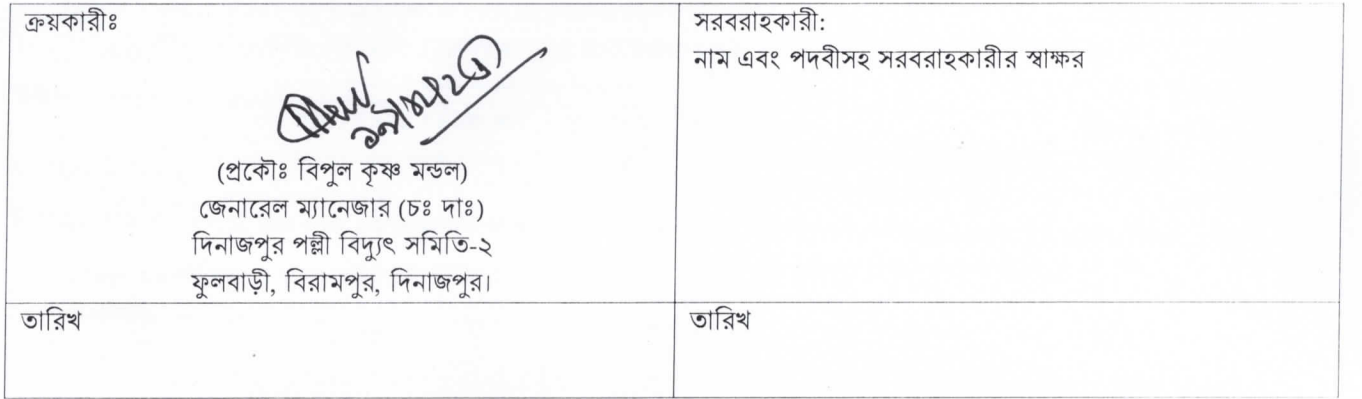 ক্রয়কারীঃ
(প্রকৌঃ বিপুল কৃষ্ণ মন্ডল)
জেনারেল ম্যানেজার (চঃ দাঃ)
দিনাজপুর পল্লী বিদ্যুৎ সমিতি-২
ফুলবাড়ী, বিরামপুর, দিনাজপুর।
সরবরাহকারী:
নাম এবং পদবীসহ সরবরাহকারীর স্বাক্ষর
তারিখ
তারিখ